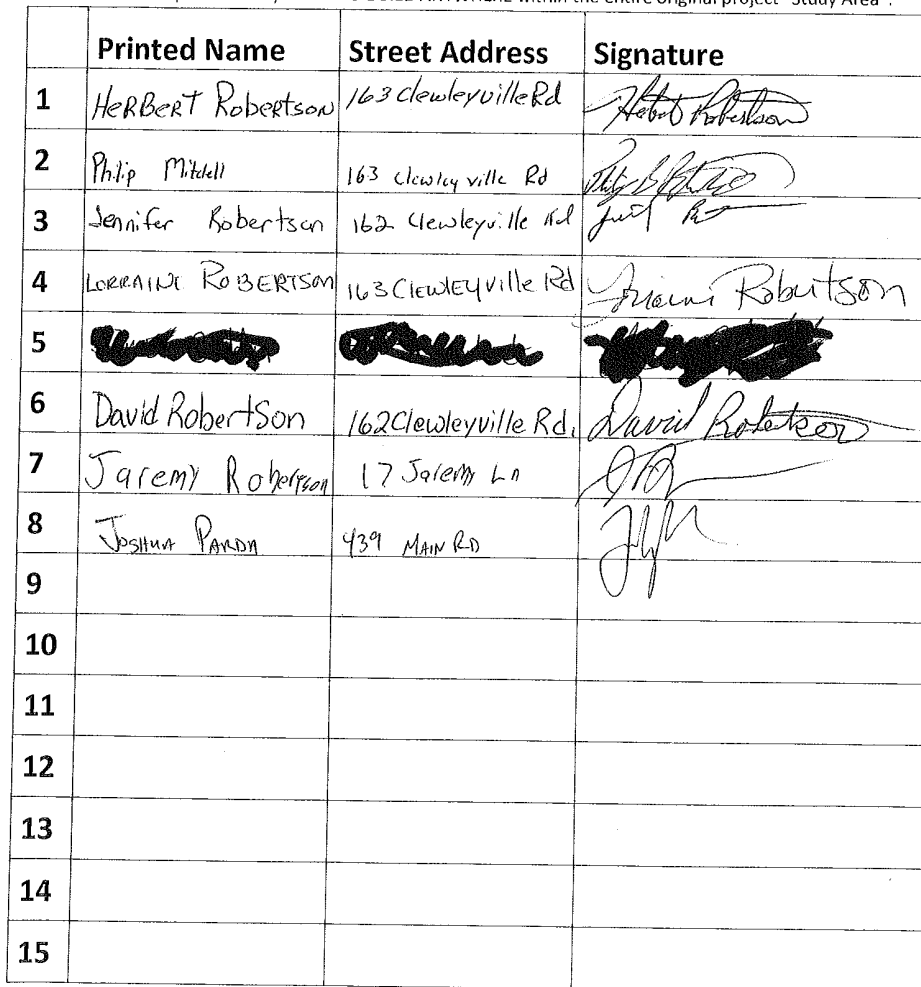 BUILD ANYWHERE within the entire original project "Study Area".
Printed Name Street Address Signature
1 HERBERT Robertson 163 Clewleyville Rd Robertson
2 Philip Mitchell 163 Clewleyville Rd
3 Jennifer Robertson 162 Clewleyville Rd
4 LORRAINE ROBERTSON 163 Clewleyville Rd Robertson
5
6 David Robertson 162 Clewleyville Rd. David Robertson
7 Jaremy Robertson 17 Jaremy Ln
8 Joshua 439 MAIN RD
9
10
11
12
13
14
15